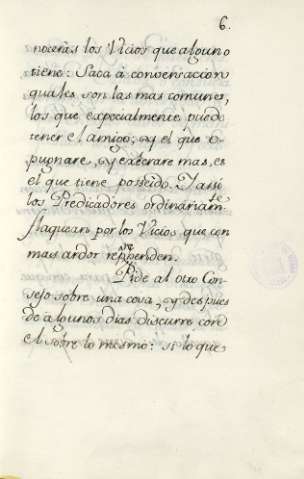 6.
nocerás los Vicios que alguno
tiene: Saca á conversacion
quales son las mas comunes,
los que especialmente puede
tener el amigo; y el que o-
pugnare, y execrare mas, es
el que tiene posseido. Y assi
los Predicadores ordinariamte
flaquean por los Vicios, que con
mas ardor reprenden.
Pide al otro Con-
sejo sobre una cosa, y despues
de algunos dias discurre con
el sobre lo mesmo: si lo que